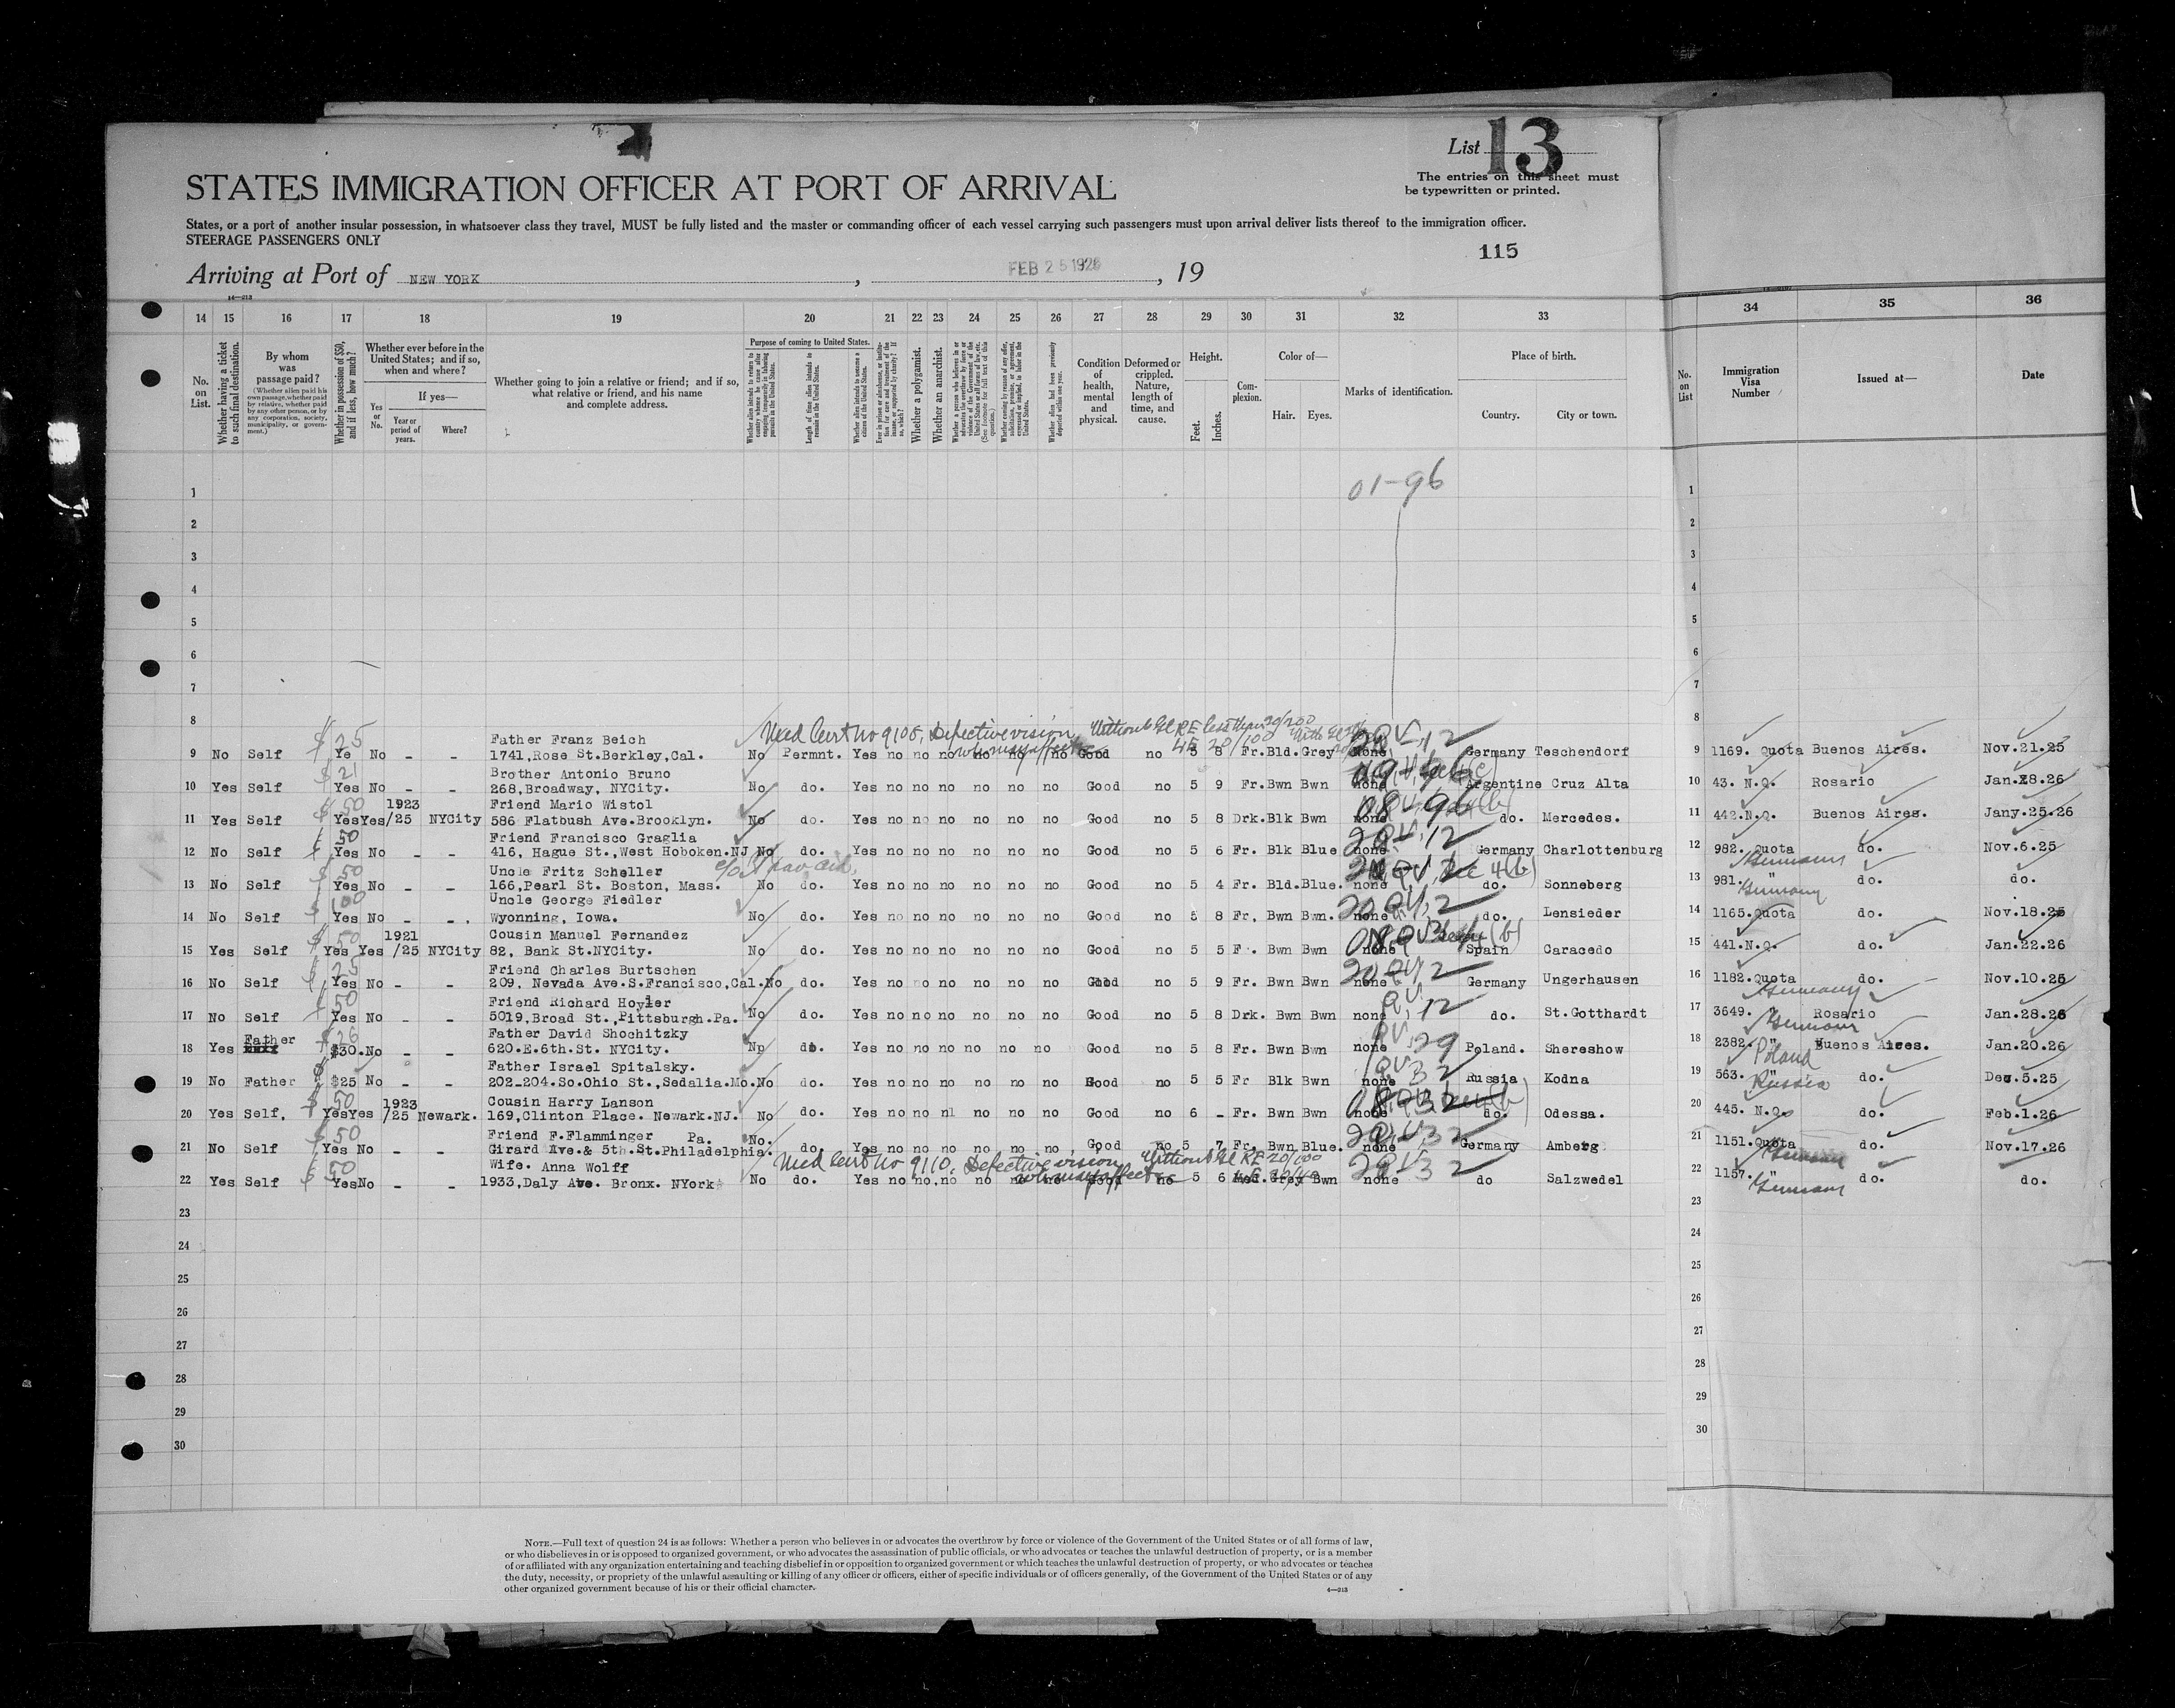 List 13
The entries on this sheet must
be typewritten or printed.
STATES IMMIGRATION OFFICER AT PORT OF ARRIVAL
States, or a port of another insular possession, in whatsoever class they travel, MUST be fully listed and the master or commanding officer of each vessel carrying such passengers must upon arrival deliver lists thereof to the immigration officer.
STEERAGE PASSENGERS ONLY
115
Arriving at Port of NEW YORK, FEB 25 1926, 19
14 15 16 17 18 19 20 21 22 23 24 25 26 27 28 29 30 31 32 33 34 35 36
No. on List.
Whether having a ticket to such final destination.
By whom was passage paid?
(Whether alien paid his own passage, whether paid by relative, whether paid by any other person, or by any corporation, society, municipality, or government.)
Whether in possession of $50, and if less, how much?
Whether ever before in the United States; and if so, when and where?
Yes or No.
If yes—
Year or period of years.
Where?
Whether going to join a relative or friend; and if so, what relative or friend, and his name and complete address.
Purpose of coming to United States.
Length of time alien intends to remain in the United States.
Whether alien intends to become a citizen of the United States.
Whether a polygamist.
Whether an anarchist.
Condition of health, mental and physical.
Deformed or crippled. Nature, length of time, and cause.
Height.
Feet.
Inches.
Complexion.
Color of—
Hair.
Eyes.
Marks of identification.
Place of birth.
Country.
City or town.
No. on List
Immigration Visa Number
Issued at—
Date
01-96
1 1
2 2
3 3
4 4
5 5
6 6
7 7
8 8
Med Cert No 9108, Defective vision Without Gl RE less than 20/200
$25 Father Franz Beich
9 No Self Ye No - - 1741,Rose St.Berkley,Cal. No Permnt. Yes no no no no no no Good no 5 8 Fr. Bld. Grey none Germany Teschendorf 9 1169. Quota Buenos Aires. Nov.21.25
$21 Brother Antonio Bruno
10 Yes Self Yes No - - 268,Broadway, NYCity. No do. Yes no no no no no no Good no 5 9 Fr. Bwn Bwn none Argentine Cruz Alta 10 43. N.Q. Rosario Jan.28.26
$50 1923 Friend Mario Wistol
11 Yes Self Yes Yes /25 NYCity 586 Flatbush Ave.Brooklyn. No do. Yes no no no no no no Good no 5 8 Drk. Blk Bwn none do. Mercedes. 11 442.N.Q. Buenos Aires. Jany.25.26
50 Friend Francisco Graglia
12 No Self Yes No - - 416, Hague St.,West Hoboken.NJ No do. Yes no no no no no no Good no 5 6 Fr. Blk Blue none Germany Charlottenburg 12 982. Quota do. Nov.6.25
$50 Uncle Fritz Scheller Germany
13 No Self Yes No - - 166,Pearl St. Boston, Mass. No do. Yes no no no no no no Good no 5 4 Fr. Bld. Blue. none do. Sonneberg 13 981. " do. do.
$100 Uncle George Fiedler Germany
14 No Self Yes No - - . Wyonning, Iowa. No do. Yes no no no no no no Good no 5 8 Fr. Bwn Bwn. none do. Lensieder 14 1165.Quota do. Nov.18.25
$50 1921 Cousin Manuel Fernandez
15 Yes Self Yes Yes /25 NYCity 82, Bank St.NYCity. No do. Yes no no no no no no Good no 5 5 F. Bwn Bwn none Spain Caracedo 15 441.N.Q. do. Jan.22.26
$25 Friend Charles Burtschen
16 No Self Yes No - - 209, Nevada Ave.S.Francisco,Cal. No do. Yes no no no no no no Good no 5 9 Fr. Bwn Bwn none Germany Ungerhausen 16 1182.Quota do. Nov.10.25
$50 Friend Richard Hoyler Germany
17 No Self Yes No - - 5019,Broad St.,Pittsburgh.Pa. No do. Yes no no no no no no Good no 5 8 Drk. Bwn Bwn none do. St.Gotthardt 17 3649. " Rosario Jan.28.26
Father $26 Father David Shochitzky Germany
18 Yes $30. No - - 620.E.6th.St. NYCity. No do. Yes no no no no no no Good no 5 8 Fr. Bwn Bwn none Poland. Shereshow 18 2382. " Buenos Aires. Jan.20.26
Father Israel Spitalsky. Poland
19 No Father $25 No - - 202-204.So.Ohio St.,Sedalia.Mo. No do. Yes no no no no no no Good no 5 5 Fr Blk Bwn none Russia Kodna 19 563. " do. Dec.5.25
$50 1923 Cousin Harry Lanson Russia
20 Yes Self. Yes Yes /25 Newark. 169,Clinton Place. Newark.NJ. No do. Yes no no nl no no no Good no 6 - Fr. Bwn Bwn none do. Odessa. 20 445. N.Q. do. Feb.1.26
$50 Friend F.Flamminger Pa. No.
21 No Self Yes No - - Girard Ave.& 5th.St.Philadelphia. do. Yes no no no no no no Good no 5 7 Fr. Bwn Blue. none Germany Amberg 21 1151.Quota do. Nov.17.26
Med Cert No 9110, Defective vision Without Gl RE 20/100
$50 Wife. Anna Wolff Germany
22 Yes Self Yes No - - 1933,Daly Ave. Bronx. NYork No do. Yes no no. no no no no Good no 5 6 Med. Grey Bwn none do Salzwedel 22 1157. " do. do.
Germany
23 23
24 24
25 25
26 26
27 27
28 28
29 29
30 30
NOTE.—Full text of question 24 is as follows: Whether a person who believes in or advocates the overthrow by force or violence of the Government of the United States or of all forms of law,
or who disbelieves in or is opposed to organized government, or who advocates the assassination of public officials, or who advocates or teaches the unlawful destruction of property, or is a member
of or affiliated with any organization entertaining and teaching disbelief in or opposition to organized government or which teaches the unlawful destruction of property, or who advocates or teaches
the duty, necessity, or propriety of the unlawful assaulting or killing of any officer or officers, either of specific individuals or of officers generally, of the Government of the United States or of any
other organized government because of his or their official character.